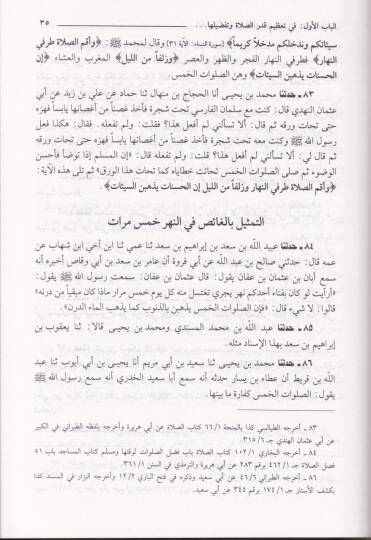 الباب الأول: في تعظيم قدر الصلاة وتفضيلها... ٣٥
سيئاتكم وندخلكم مدخلاً كريماً﴾ [سورة النساء: الآية ٣١] وقال لمحمد ﷺ: ﴿وأقم الصلاة طرفي
النهار﴾ فطرفي النهار الفجر والظهر والعصر ﴿وزلفاً من الليل﴾ المغرب والعشاء ﴿إن
الحسنات يذهبن السيئات﴾ وهن الصلوات الخمس.
٨٣ - حدثنا محمد بن يحيى أنا الحجاج بن منهال ثنا حماد عن علي بن زيد عن أبي
عثمان النهدي قال: كنت مع سلمان الفارسي تحت شجرة فأخذ غصناً من أغصانها يابساً فهزه
حتى تحات ورقه ثم قال: ألا تسألني لم أفعل هذا؟ فقلت: ولم تفعله. فقال: هكذا فعل
رسول الله ﷺ وكنت معه تحت شجرة فأخذ غصناً من أغصانها يابساً فهزه حتى تحات ورقه
ثم قال لي: ألا تسألني لم أفعل هذا؟ قلت: ولم تفعله قال: «إن المسلم إذا توضأ فأحسن
الوضوء ثم صلى الصلوات الخمس تحاتت خطاياه كما تحات هذا الورق» ثم تلى هذه الآية:
﴿وأقم الصلاة طرفي النهار وزلفاً من الليل إن الحسنات يذهبن السيئات﴾.
التمثيل بالغائص في النهر خمس مرات
٨٤ - حدثنا عبيد الله بن سعد بن إبراهيم بن سعد ثنا عمي ثنا ابن أخي ابن شهاب عن
عمه قال: حدثني صالح بن عبد الله بن أبي فروة أن عامر بن سعد بن أبي وقاص أخبره أنه
سمع أبان بن عثمان بن عفان يقول: قال عثمان بن عفان: سمعت رسول الله ﷺ يقول:
«أرأيت لو كان بفناء أحدكم نهر يجري تغتسل منه كل يوم خمس مرار ماذا كان مبقياً من درنه»
قالوا: لا شيء قال: «فإن الصلوات الخمس يذهبن بالذنوب كما يذهب الماء الدرن».
٨٥ - حدثنا عبد الله بن محمد المسندي ومحمد بن يحيى قالا: ثنا يعقوب بن
إبراهيم بن سعد بهذا الإسناد مثله.
٨٦ - حدثنا محمد بن يحيى ثنا سعيد بن أبي مريم أنا يحيى بن أبي أيوب ثنا عبد
الله بن قريط أن عطاء بن يسار حدثه أنه سمع أبا سعيد الخدري أنه سمع رسول الله ﷺ
يقول: الصلوات الخمس كفارة ما بينها.
٨٣ - أخرجه الطيالسي كذا بالمنحة ٦٦/١ كتاب الصلاة عن أبي هريرة وأخرجه بلفظه الطبراني في الكبير
عن أبي عثمان الهندي جـ ٣١٥/٦.
٨٤ - أخرجه البخاري ١٠٢/١ كتاب الصلاة باب فضل الصلوات لوقتها ومسلم كتاب المساجد باب ٥١
فضل الصلاة جـ ٤٦٢/١ برقم ٢٨٣ عن أبي هريرة والترمذي في السنن ٣٦١/١.
٨٦ - أخرجه الطبراني ٤٦/٦ عن أبي سعيد وذكره في فتح الباري ١٢/٢ وأخرجه البزار في المسند كذا
بكشف الأستار جـ ١٧٤/١ برقم ٣٤٤ عن أبي سعيد.